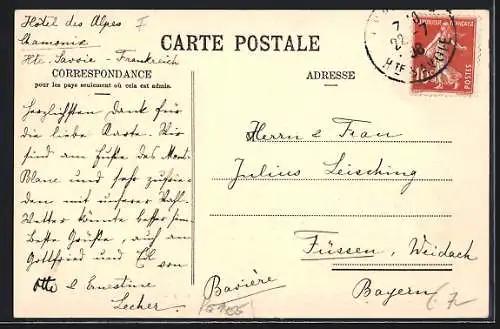 Hôtel des Alpes I
Chamonix
Hte. Savoie - Frankreich
CARTE POSTALE
CORRESPONDANCE
pour les pays seulement où cela est admis.
ADRESSE
RÉPUBLIQUE FRANÇAISE
POSTES
Herzlichsten Dank für
die liebe Karte. Wir
sind am Fuße des Mont
Blanc und sehr zufrie-
den mit unserer Wahl.
Wetter könnte besser sein.
Beste Grüße, auch an
Gottfried und El von
Otto & Ernestine
Lecher.
Herrn & Frau
Julius Leisching
Füssen, Weidach
Bayern
Bavière
7